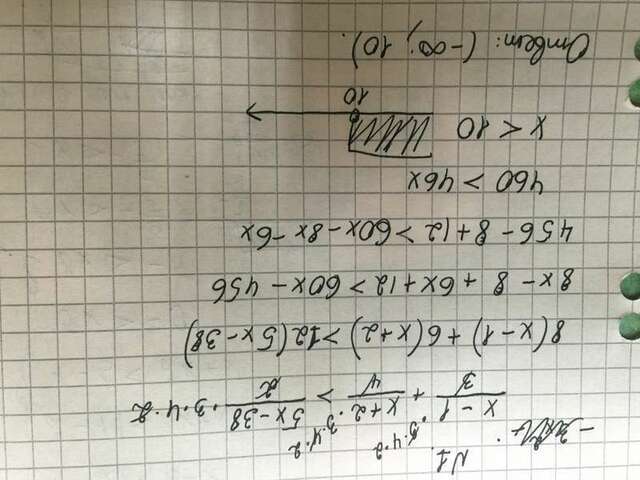 №1
x - 1 / 3 · 3·4·2 + x + 2 / 4 · 3·4·2 > 5x - 38 / 2 · 3·4·2
8(x-1) + 6(x+2) > 12(5x-38)
8x - 8 + 6x + 12 > 60x - 456
456 - 8 + 12 > 60x - 8x - 6x
460 > 46x
x < 10
10
Ответ: (-∞; 10).